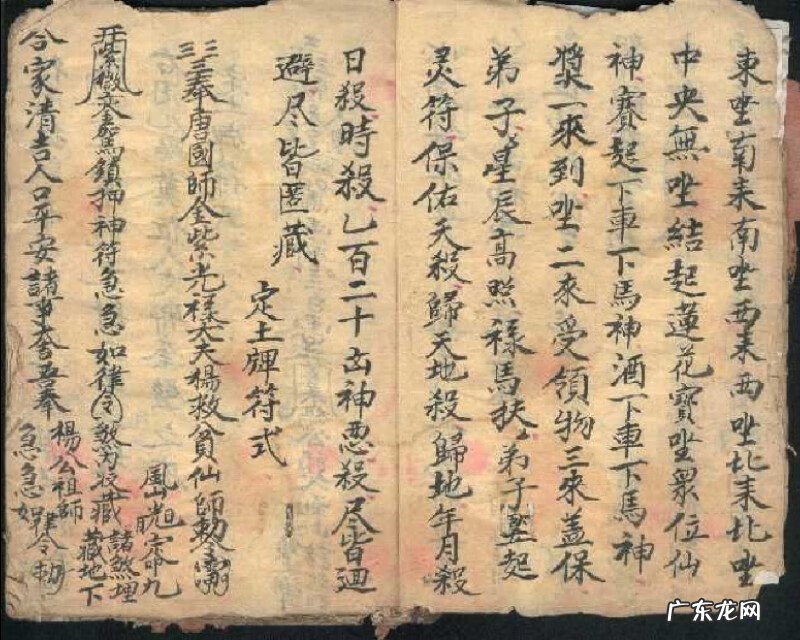 東坐南来南坐西来西坐北来北坐
中央無坐結起蓮花寶坐眾位仙
神賽起下車下馬神酒下車下馬神
漿一來到坐二來受領物三來蓋保
弟子星辰高照祿馬扶弟子竪起
灵符保佑天殺歸天地殺歸地年月殺
日殺時殺乙百二十四神恶殺尽皆迴
避尽皆匿藏
定土牌符式
奉唐國師金紫光祿大夫楊救貧仙師勅
紫微 神符急急如律令煞 收藏 諸煞埋
藏地下
合家清吉人口平安諸事 吾奉
楊公祖師
急急如律令勅
广东龙网